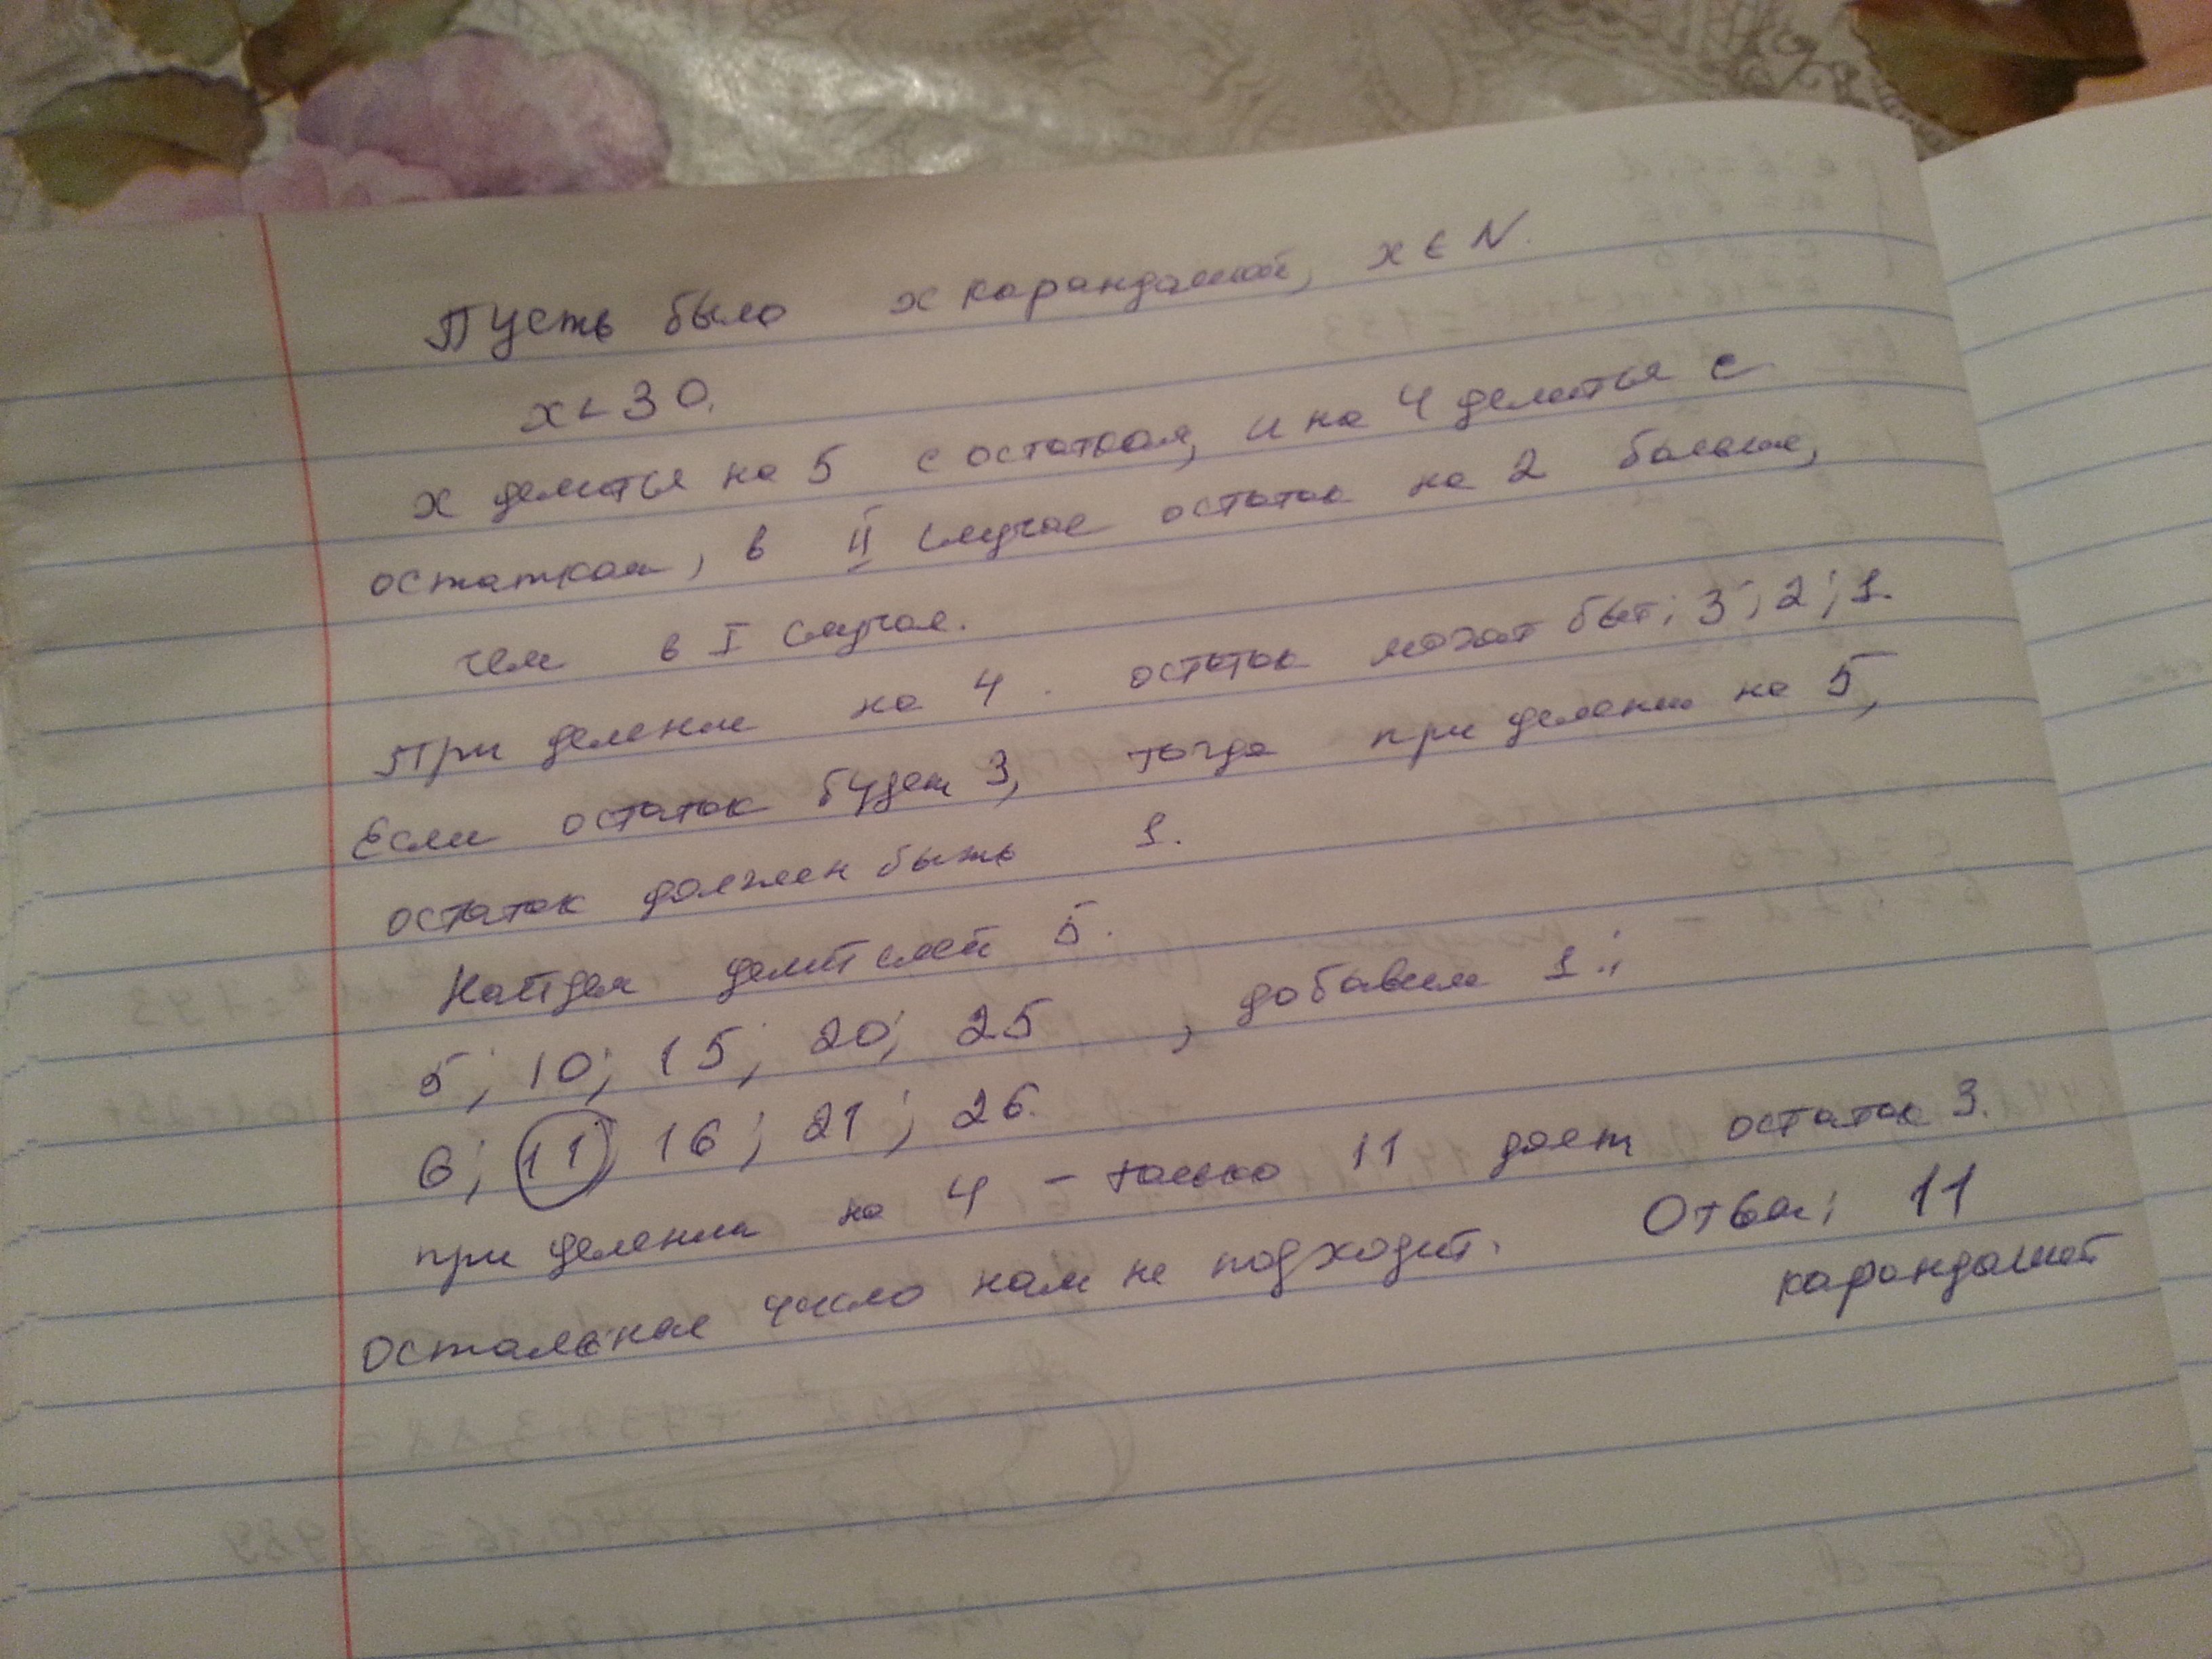 Пусть было х карандашей, х ∈ N.
х < 30.
х делится на 5 с остатком, и на 4 делится с
остатком, в II случае остаток на 2 больше,
чем в I случае.
При делении на 4 остаток может быт: 3; 2; 1.
Если остаток будет 3, тогда при делении на 5,
остаток должен быть 1.
Найдем делителей 5.
5; 10; 15; 20; 25, добавим 1:
6; 11; 16; 21; 26.
при делении на 4 - только 11 дает остаток 3.
Остальное число нам не подходит. Ответ: 11
карандашей